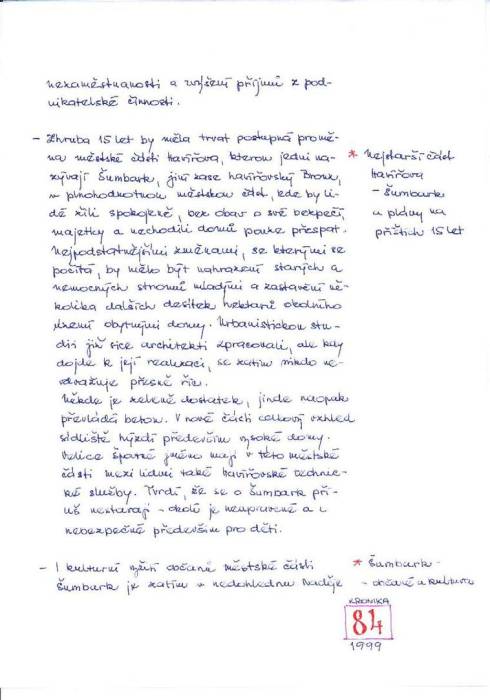 nezaměstnanosti a zvýšení příjmů z pod-
nikatelské činnosti.
- Zhruba 15 let by měla trvat postupná promě-
na městské části Havířova, kterou jedni na-
zývají Šumbark, jiní zase havířovský Bronx,
v plnohodnotnou městskou část, kde by li-
dé žili spokojeně, bez obav o své bezpečí,
majetky a nechodili domů pouze přespat.
Nejpodstatnějšími změnami, se kterými se
počítá, by mělo být nahrazení starých a
nemocných stromů mladými a zastavění ně-
kolika dalších desítek hektarů okolního
území obytnými domy. Urbanistickou stu-
dii již sice architekti zpracovali, ale kdy
dojde k její realizaci, se zatím nikdo ne-
odvažuje přesně říci.
Někde je zeleně dostatek, jinde naopak
převládá beton. V nové části celkový vzhled
sídliště hyzdí především vysoké domy.
Velice špatné jméno mají v této městské
části mezi lidmi také havířovské technic-
ké služby. Tvrdí, že se o Šumbark pří-
liš nestarají - okolí je neupravené a i
nebezpečné především pro děti.
- I kulturní vyžití občanů městské části
Šumbark je zatím v nedohlednu. Naděje
* Nejstarší část
Havířova
- Šumbark
a plány na
příštích 15 let
* Šumbark -
- občané a kultura
KRONIKA
84
1999